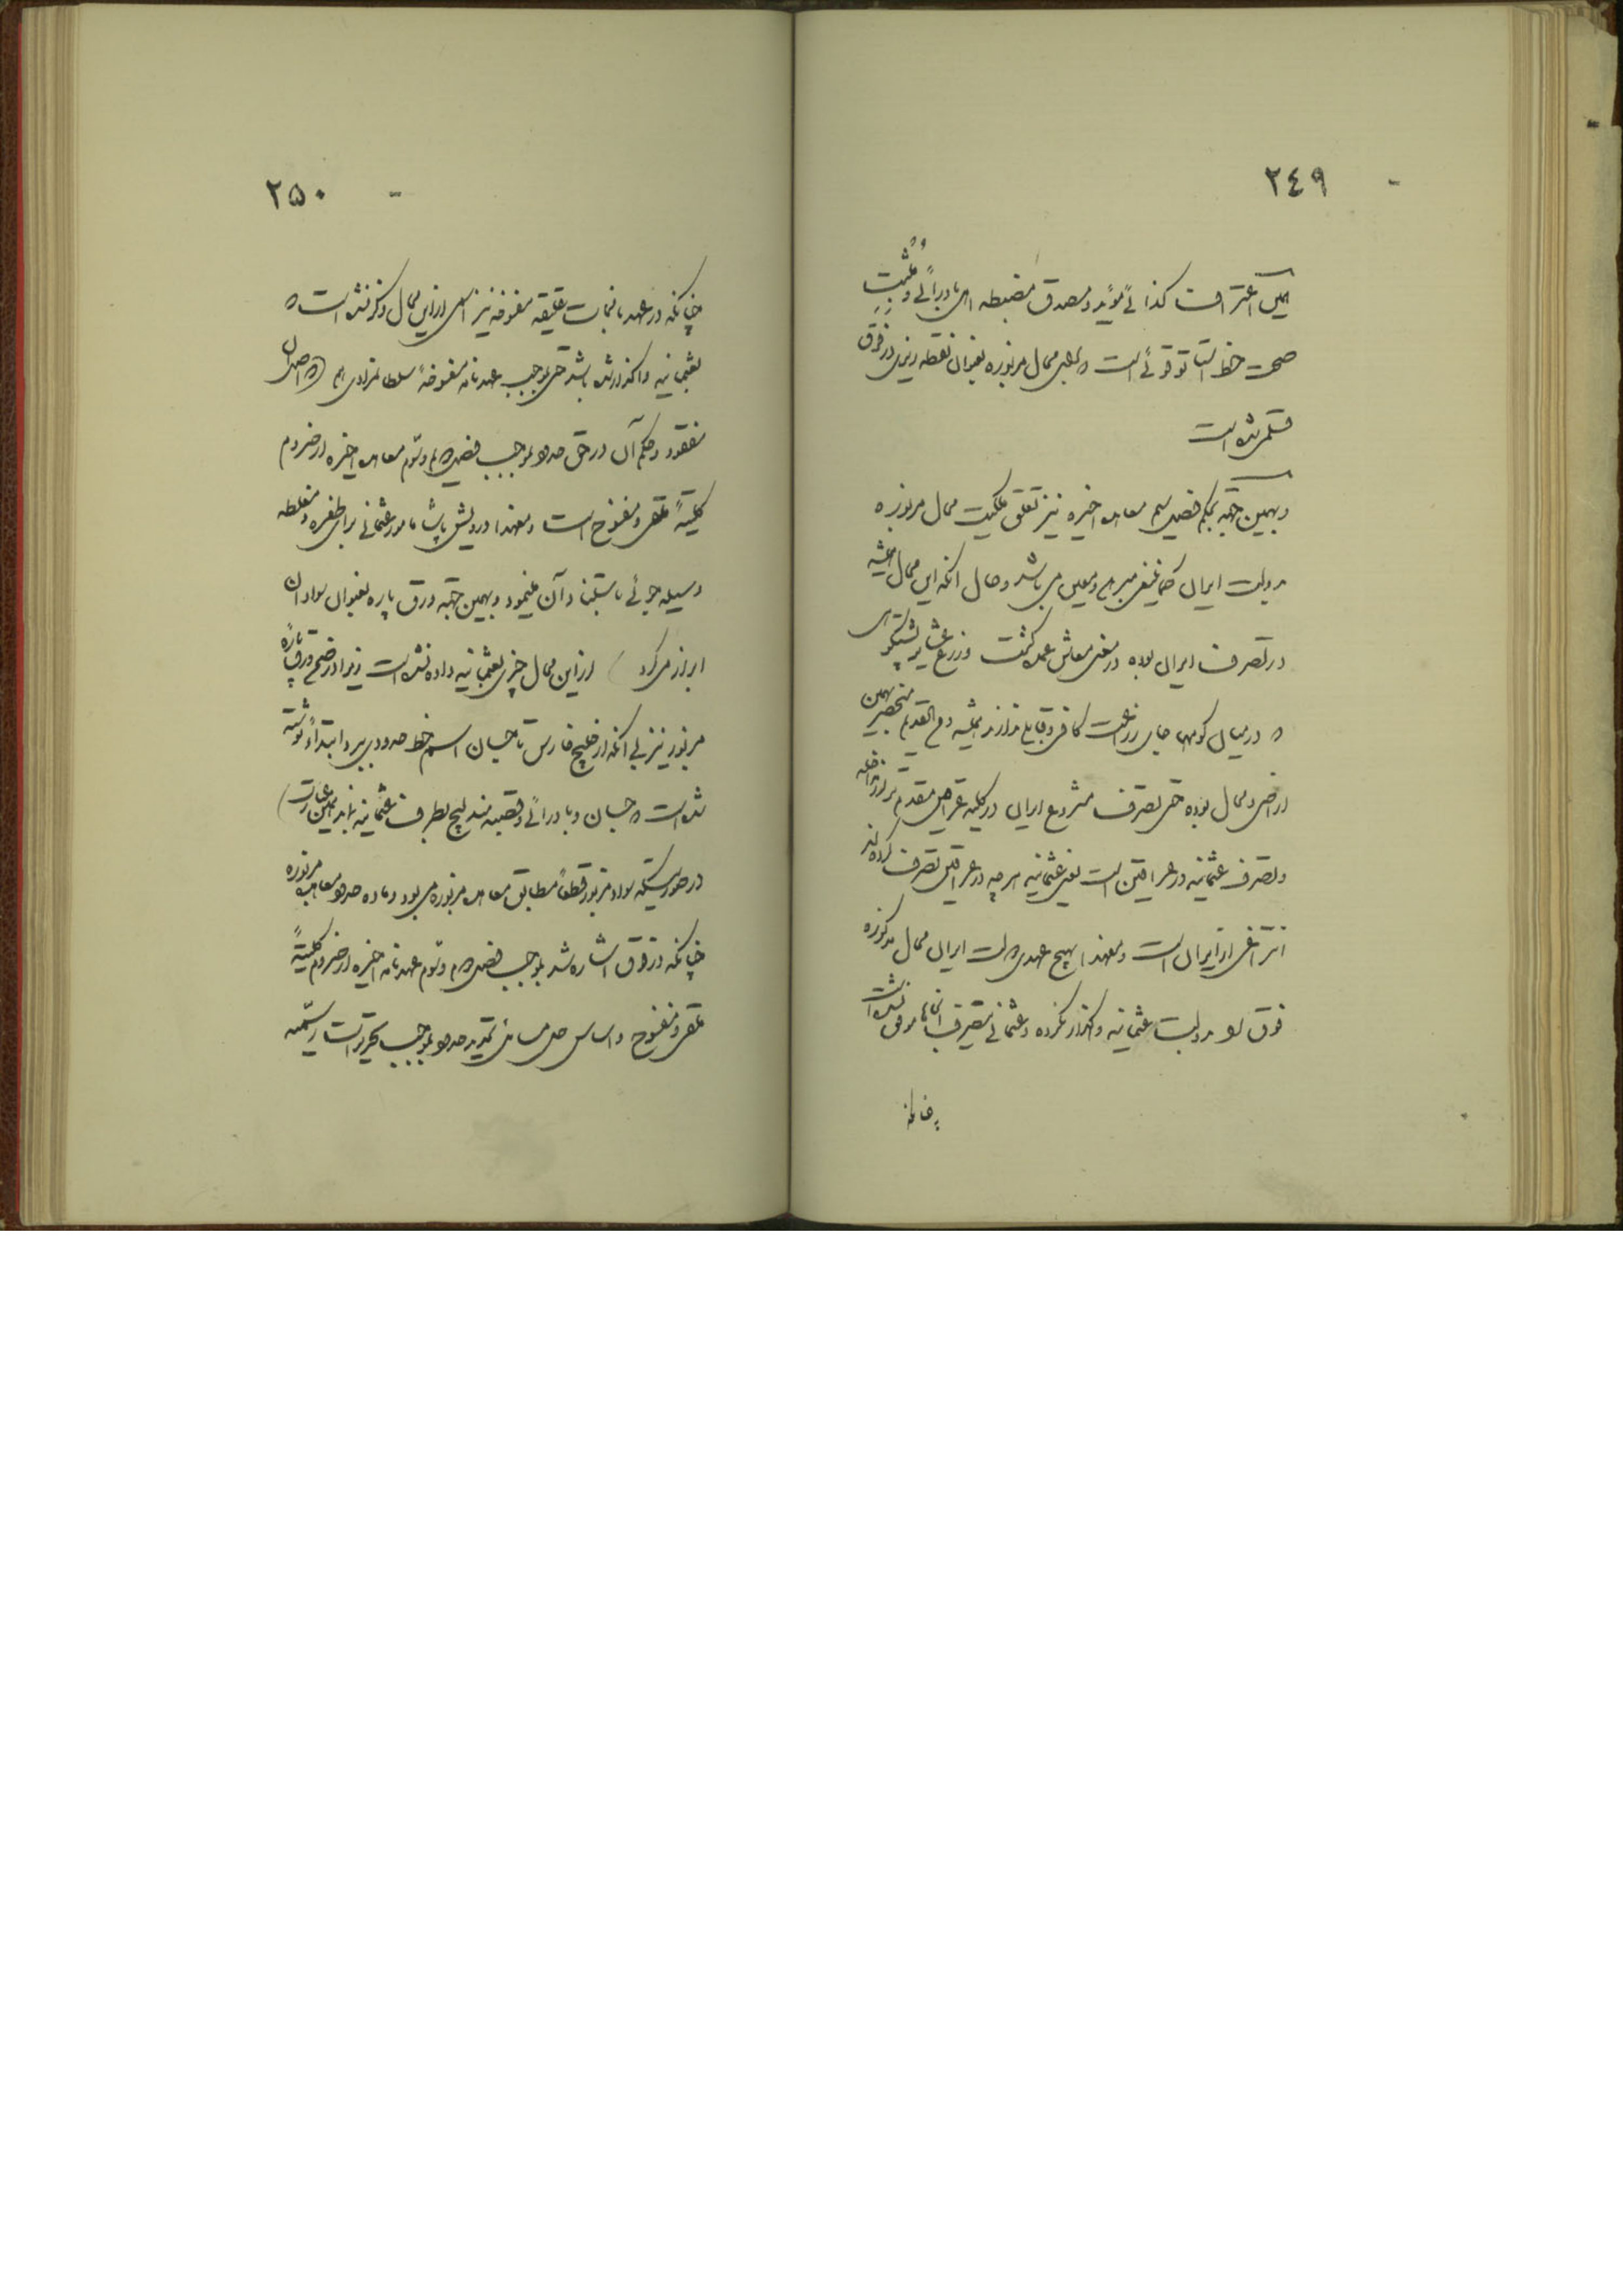 ٢٤٩
همین اعترافات کذائی مؤید و مصدق مضبطه اهالی بادرائی و مثبت
صحت خط استاتوقوئی است و اهالی محال مزبوره بعنوان نقطه ریزی در فوق
قلمی شده است
و بهمین جهة بحکم فصل سیم معاهده اخیره نیز تعلق ملکیت محال مزبوره
بدولت ایران کما ینبغی مبرهن و معین می باشد و حال آنکه این محال همیشه
در تصرف ایران بوده و معنی معاش عمده گشت و زرع عشایر پشتکوهی
و در میان کوهها جای زراعت کافی و قابلی ندارند همیشه و مع القدیم منحصر بهمین
اراضی و محال بوده حق تصرف مشروع ایران در کلیه عراقین مقدم تر از مداخله
و تصرف عثمانیه در عراقین است یعنی عثمانیه هر چه در عراقین تصرف کرده اند
انتزاعی از ایران است و معهذا بهیچ عهدی دولت ایران محال مذکوره
فوق را بدولت عثمانیه واگذار نکرده و عثمانی بتصرف آنها موفق نشده است
چنانکه
٢۵٠
چنانکه در عهدنامجات عتیقه مفسوخه نیز اسمی از این محال ذکر نشده است که
بعثمانیه واگذار شده باشد حتی بموجب عهدنامه مفسوخهٔ سلطان مراد هم (که اصل آن
مفقود و حکم آن در حق حدود بموجب فصل دویم و سوم معاهده اخیره ارضروم
کلیةً ملغی و مفسوخ است و معهذا درویش پاشا مامور عثمانی برای طفره و مغلطه
وسیله جوئی باستناد آن مینمود و بهمین جهة ورق پاره بعنوان سواد آن
ابراز می کرد) از این محال چیزی بعثمانیه داده نشده است زیرا در ضمن ورق پاره
مزبور نیز بی آنکه از خلیج فارس تا جسان اسم خط حدودی ببرد ابتداءً نوشته
شده است که جسان و بادرائی و قصبه مندلیج بطرف عثمانیه بماند بهمین عبارت)
در صورتیکه سواد مزبور قطعاً مطابق معاهده مزبوره می بود و ماده حدود معاهده مزبوره
چنانکه در فوق اشاره شد بموجب فصل دویم و سوم عهدنامه اخیره ارضروم کلیةً
ملغی و مفسوخ و اساس حل مسائل تحدید حدود بموجب تحریرات رسمیه